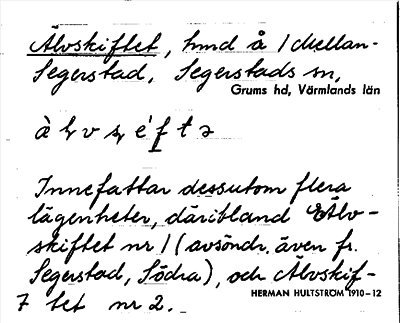 Älvskiftet, hmd å 1 Mellan-
Segerstad, Segerstads sn,
Grums hd, Värmlands län
Innefattar dessutom flera
lägenheter, däribland Älv-
skiftet nr 1 (avsöndr. även fr.
Segerstad, Södra), och Älvskif-
7 tet nr 2.
HERMAN HULTSTRÖM 1910-12